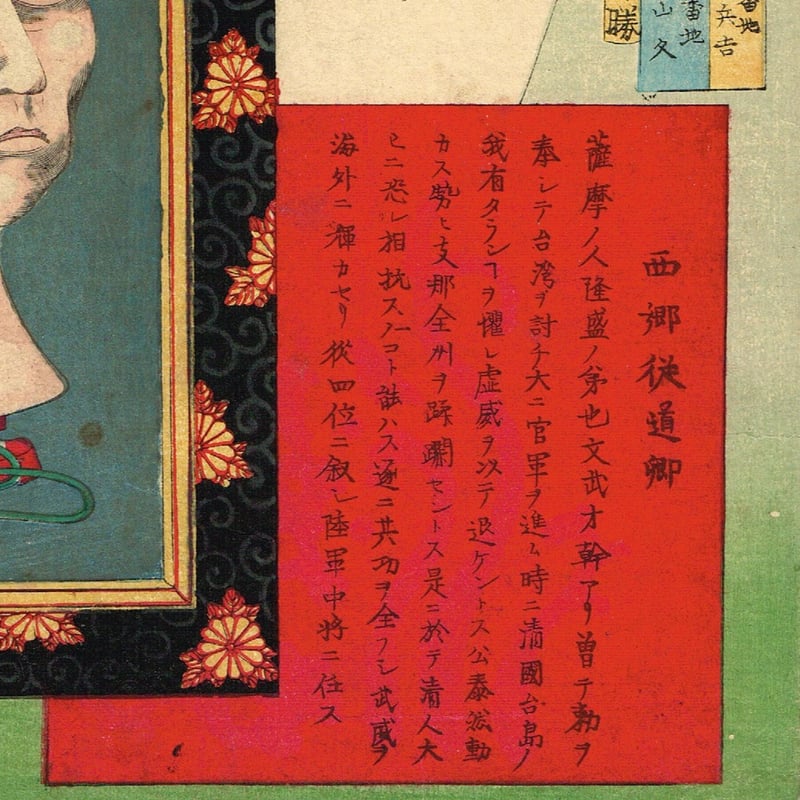 番地
兵吉
番地
山久
勝
西郷従道卿
薩摩ノ人隆盛ノ弟也文武才幹アリ曽テ勅ヲ
奉シテ台湾ヲ討チ大ニ官軍ヲ進ム時ニ清國台島ノ
我有タランヿヲ懼レ虚威ヲ以テ退ケントス公泰然動
カス勢ヒ支那全州ヲ蹂躙セントス是ニ於テ清人大
ヒニ恐レ相抗スルコト能ハス遂ニ其功ヲ全フシ武威ヲ
海外ニ輝カセリ從四位ニ叙シ陸軍中将ニ任ス